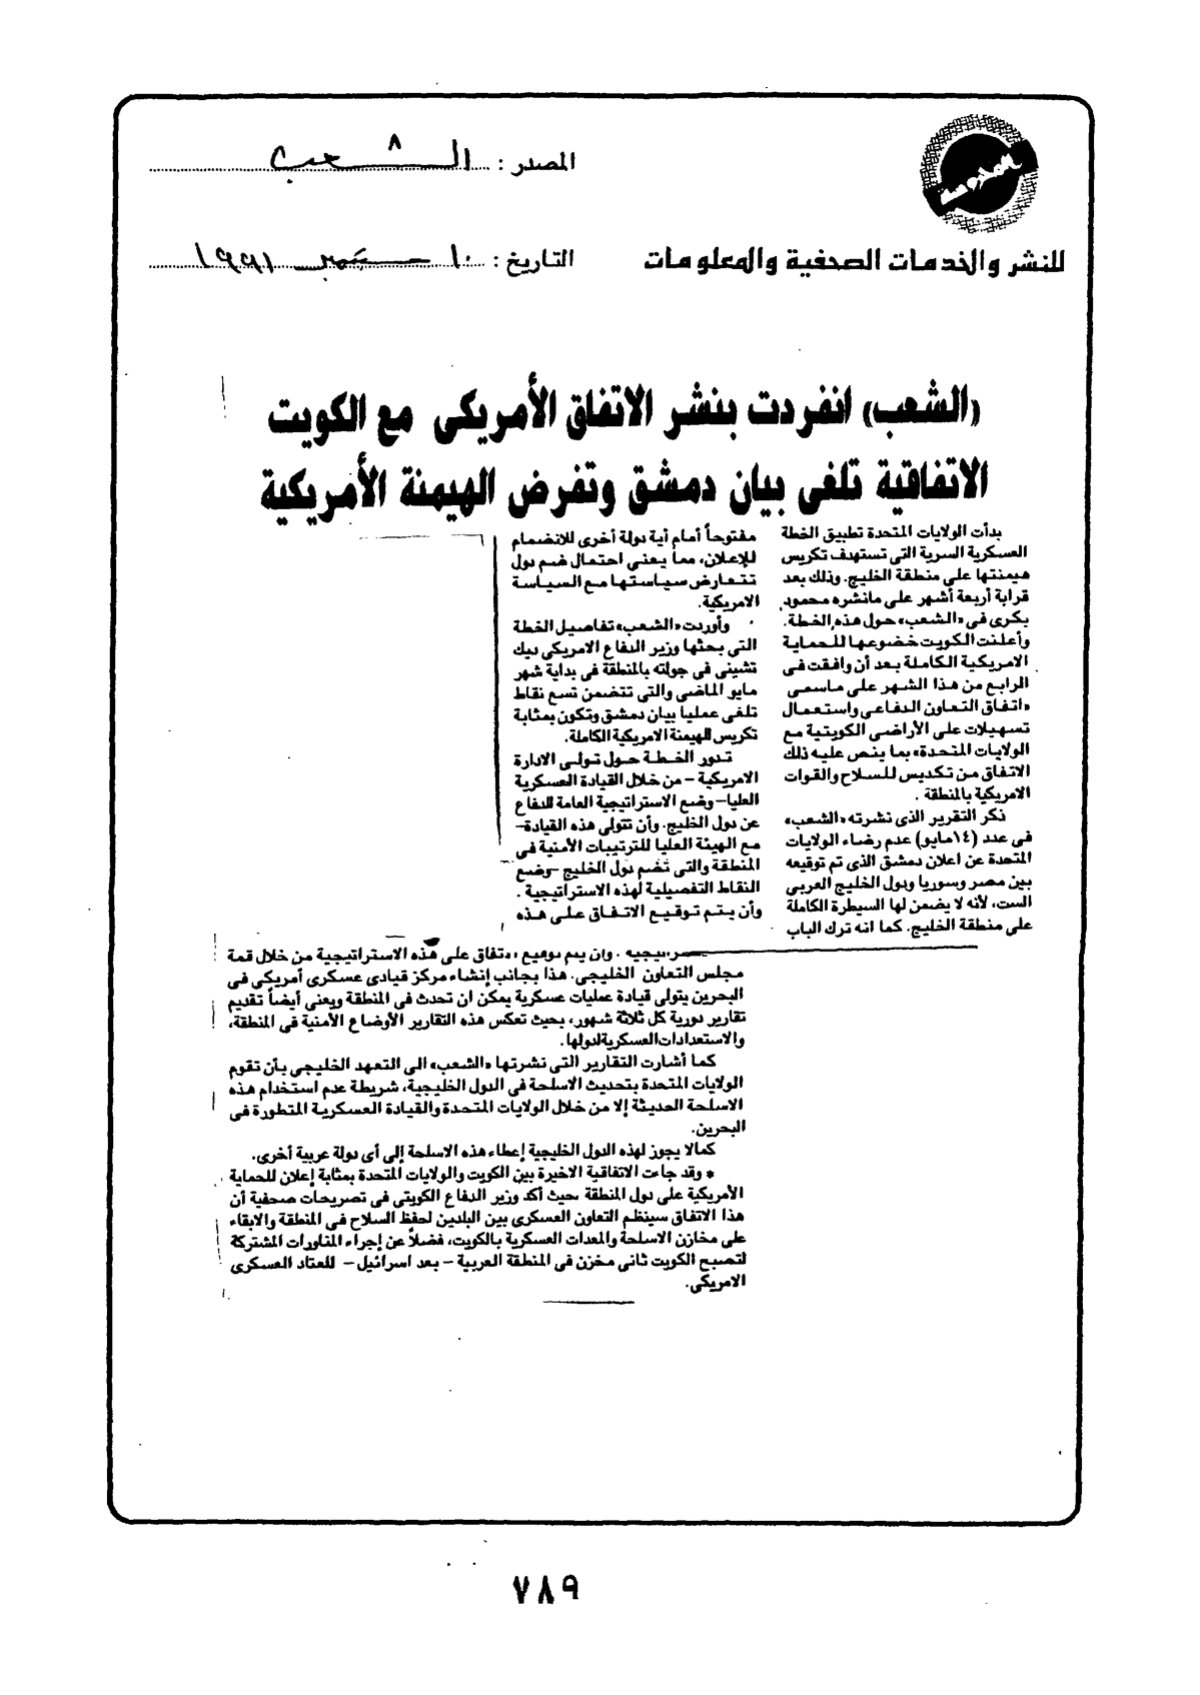 المصدر : الشعب
للنشر والخدمات الصحفية والمعلومات
التاريخ : ١٠ سبتمبر ١٩٩١
«الشعب» انفردت بنشر الاتفاق الأمريكى مع الكويت
الاتفاقية تلغى بيان دمشق وتفرض الهيمنة الأمريكية
بدأت الولايات المتحدة تطبيق الخطة
العسكرية السرية التى تستهدف تكريس
هيمنتها على منطقة الخليج. وذلك بعد
قرابة أربعة أشهر على مانشره محمود
بكرى فى «الشعب» حول هذه الخطة.
وأعلنت الكويت خضوعها للحماية
الامريكية الكاملة بعد أن وافقت فى
الرابع من هذا الشهر على ماسمى
«اتفاق التعاون الدفاعى واستعمال
تسهيلات على الأراضى الكويتية مع
الولايات المتحدة» بما ينص عليه ذلك
الاتفاق من تكديس للسلاح والقوات
الامريكية بالمنطقة .
ذكر التقرير الذى نشرته «الشعب»
فى عدد (١٤مايو) عدم رضاء الولايات
المتحدة عن اعلان دمشق الذى تم توقيعه
بين مصر وسوريا ودول الخليج العربى
الست، لأنه لا يضمن لها السيطرة الكاملة
على منطقة الخليج. كما انه ترك الباب
مفتوحاً أمام أية دولة أخرى للانضمام
للإعلان، مما يعنى احتمال ضم دول
تتعارض سياستها مع السياسة
الامريكية.
وأوردت «الشعب» تفاصيل الخطة
التى بحثها وزير الدفاع الامريكى ديك
تشينى فى جولته بالمنطقة فى بداية شهر
مايو الماضى والتى تتضمن تسع نقاط
تلغى عمليا بيان دمشق وتكون بمثابة
تكريس للهيمنة الامريكية الكاملة.
تدور الخطة حول تولى الادارة
الامريكية – من خلال القيادة العسكرية
العليا– وضع الاستراتيجية العامة للدفاع
عن دول الخليج. وأن تتولى هذه القيادة–
مع الهيئة العليا للترتيبات الأمنية فى
المنطقة والتى تضم دول الخليج –وضع
النقاط التفصيلية لهذه الاستراتيجية .
وأن يتم توقيع الاتفاق على هذه
وان يتم توقيع اتفاق على هذه الاستراتيجية من خلال قمة
مجلس التعاون الخليجى. هذا بجانب إنشاء مركز قيادى عسكرى أمريكى فى
البحرين يتولى قيادة عمليات عسكرية يمكن ان تحدث فى المنطقة ويعنى أيضاً تقديم
تقارير دورية كل ثلاثة شهور، بحيث تعكس هذه التقارير الأوضاع الأمنية فى المنطقة،
والاستعدادات العسكرية لدولها.
كما أشارت التقارير التى نشرتها «الشعب» الى التعهد الخليجى بأن تقوم
الولايات المتحدة بتحديث الاسلحة فى الدول الخليجية، شريطة عدم استخدام هذه
الاسلحة الحديثة إلا من خلال الولايات المتحدة والقيادة العسكرية المتطورة فى
البحرين.
كمالا يجوز لهذه الدول الخليجية إعطاء هذه الاسلحة إلى أى دولة عربية أخرى.
* وقد جاءت الاتفاقية الاخيرة بين الكويت والولايات المتحدة بمثابة إعلان للحماية
الأمريكية على دول المنطقة حيث أكد وزير الدفاع الكويتى فى تصريحات صحفية أن
هذا الاتفاق سينظم التعاون العسكرى بين البلدين لحفظ السلاح فى المنطقة والابقاء
على مخازن الاسلحة والمعدات العسكرية بالكويت، فضلاً عن إجراء المناورات المشتركة
لتصبح الكويت ثانى مخزن فى المنطقة العربية – بعد اسرائيل – للعتاد العسكرى
الامريكى.
٧٨٩